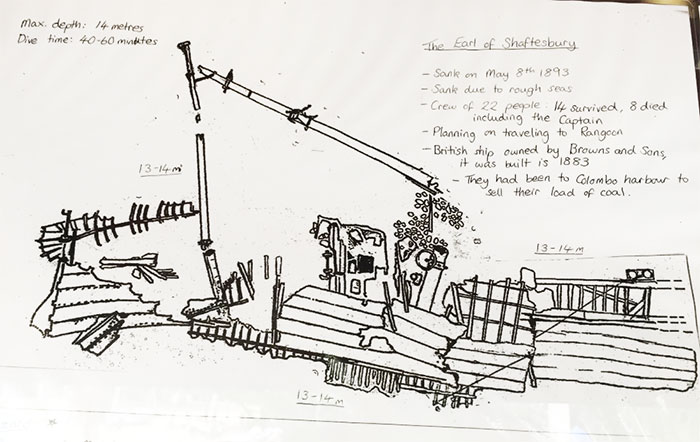 Max. depth: 14 metres
Dive time: 40-60 minutes
The Earl of Shaftesbury
- Sank on May 8th 1893
- Sank due to rough seas
- Crew of 22 people: 14 survived, 8 died
including the Captain
- Planning on traveling to Rangoon
- British ship owned by Browns and Sons,
it was built is 1883
- They had been to Colombo harbour to
sell their load of coal.
13-14 m
13-14 m
13-14 m